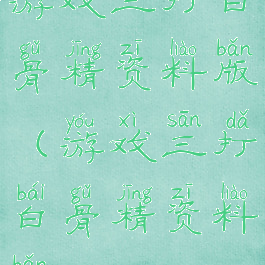 游戏三打白
gǔ jīng zī liào bǎn
骨精资料版
yóu xì sān dǎ
（游戏三打
bái gǔ jīng zī liào
白骨精资料
bǎn